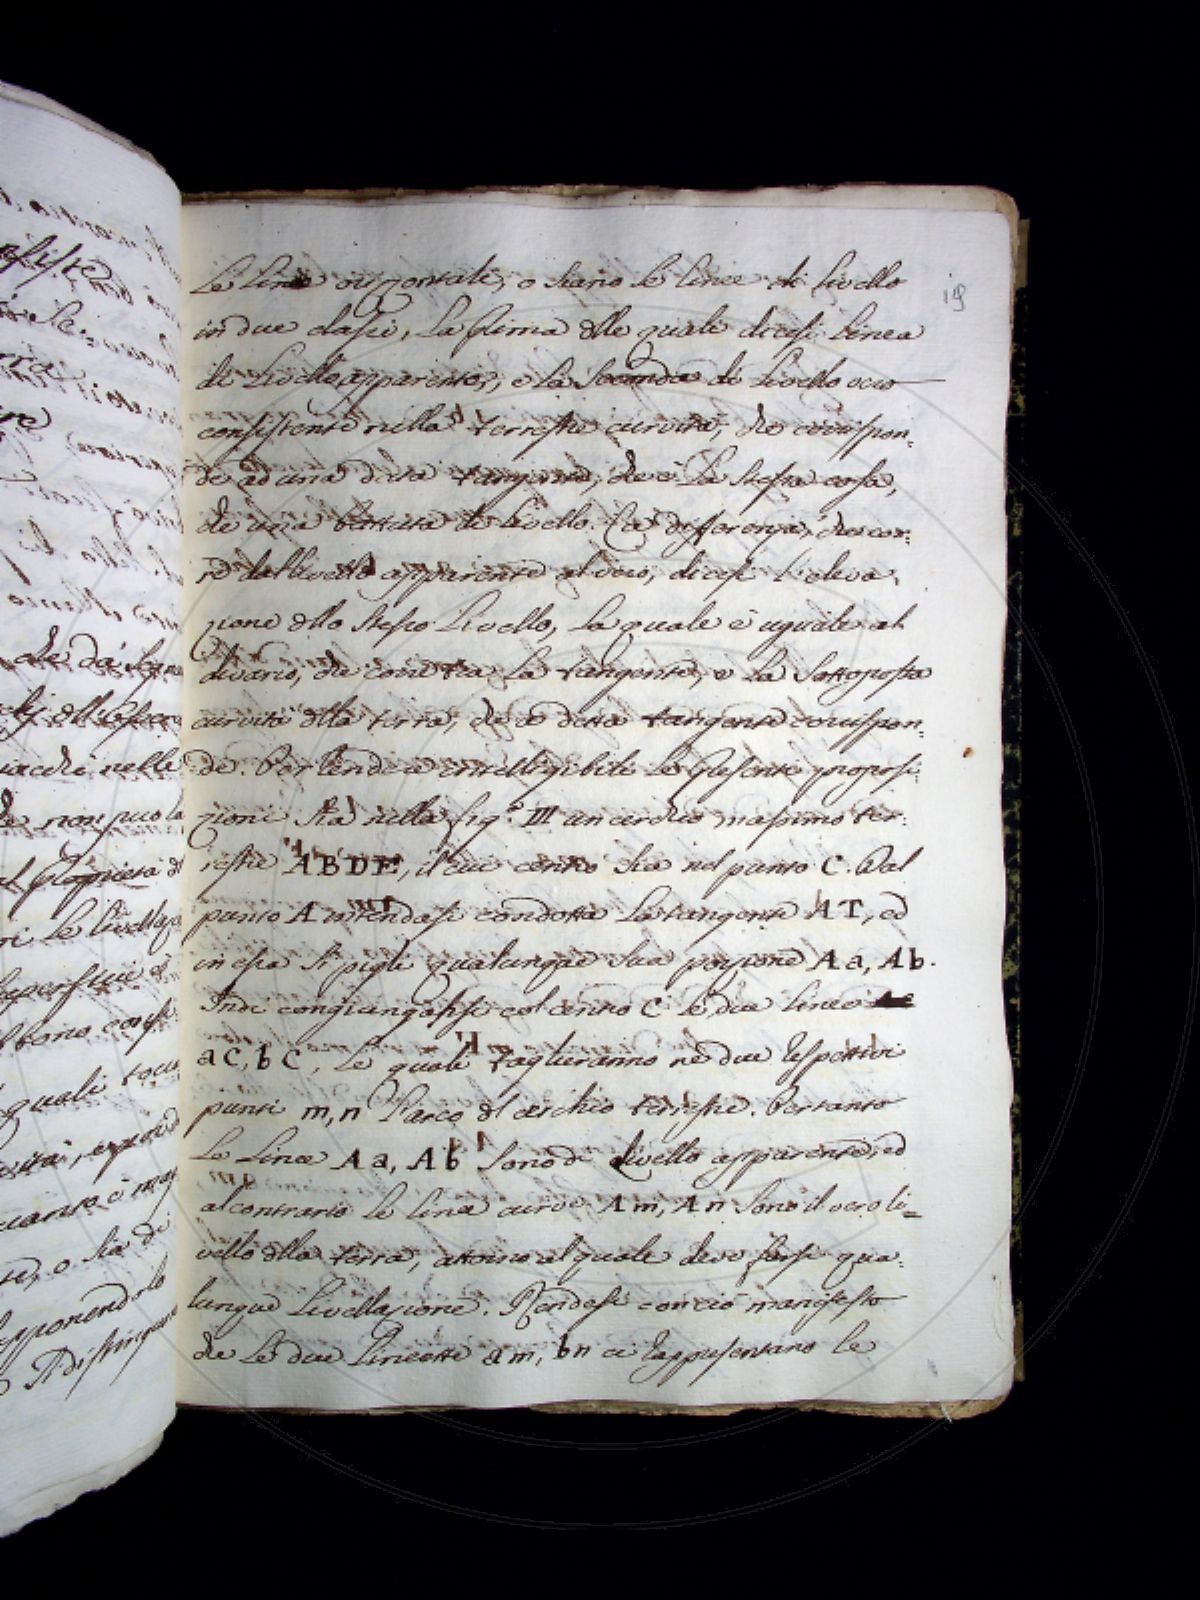 19
Le Linee orizontali, o siano le linee di livello
in due classi, La prima dlle quali dicesi Linea
di Livello apparente, e la Seconda di Livello vero
consistente nella terrestre curvità, che corrispon-
de ad una data tangente, che è La stessa cosa,
che una battuta di Livello. La differenza, che cor-
re dal livello apparente al vero, dicesi l'eleva
zione dllo stesso Livello, La quale è uguale al
divario, che corre tra La tangente, e La Sottoposta
curvità dlla terra, che a detta tangente corrispon-
de. Per render intelligibile Le presente proposi-
zioni Sia nella fig.ª III un cerchio massimo ter-
restre ABDE, il cui centro sia nel punto C. Dal
punto A intendasi condotta La tangente AT, ed
in essa si pigli qualunque sua porzione Aa, Ab.
Indi congiungasi col centro C le due linee
aC, bC, le quali taglieranno ne due respettivi
punti m, n l'arco dl cerchio terrestre. Pertanto
Le Linee Aa, Ab Sono di Livello apparente, ed
al contrario le linee curve Am, An Sono il vero li-
vello dlla terra, attorno al quale deve farsi qua-
lunque Livellazione. Rendesi con ciò manifesto
che Le due Lineette am, bn ci rappresentano le
che dà
nelle
non può la
al
quali
quanto è
o sia di